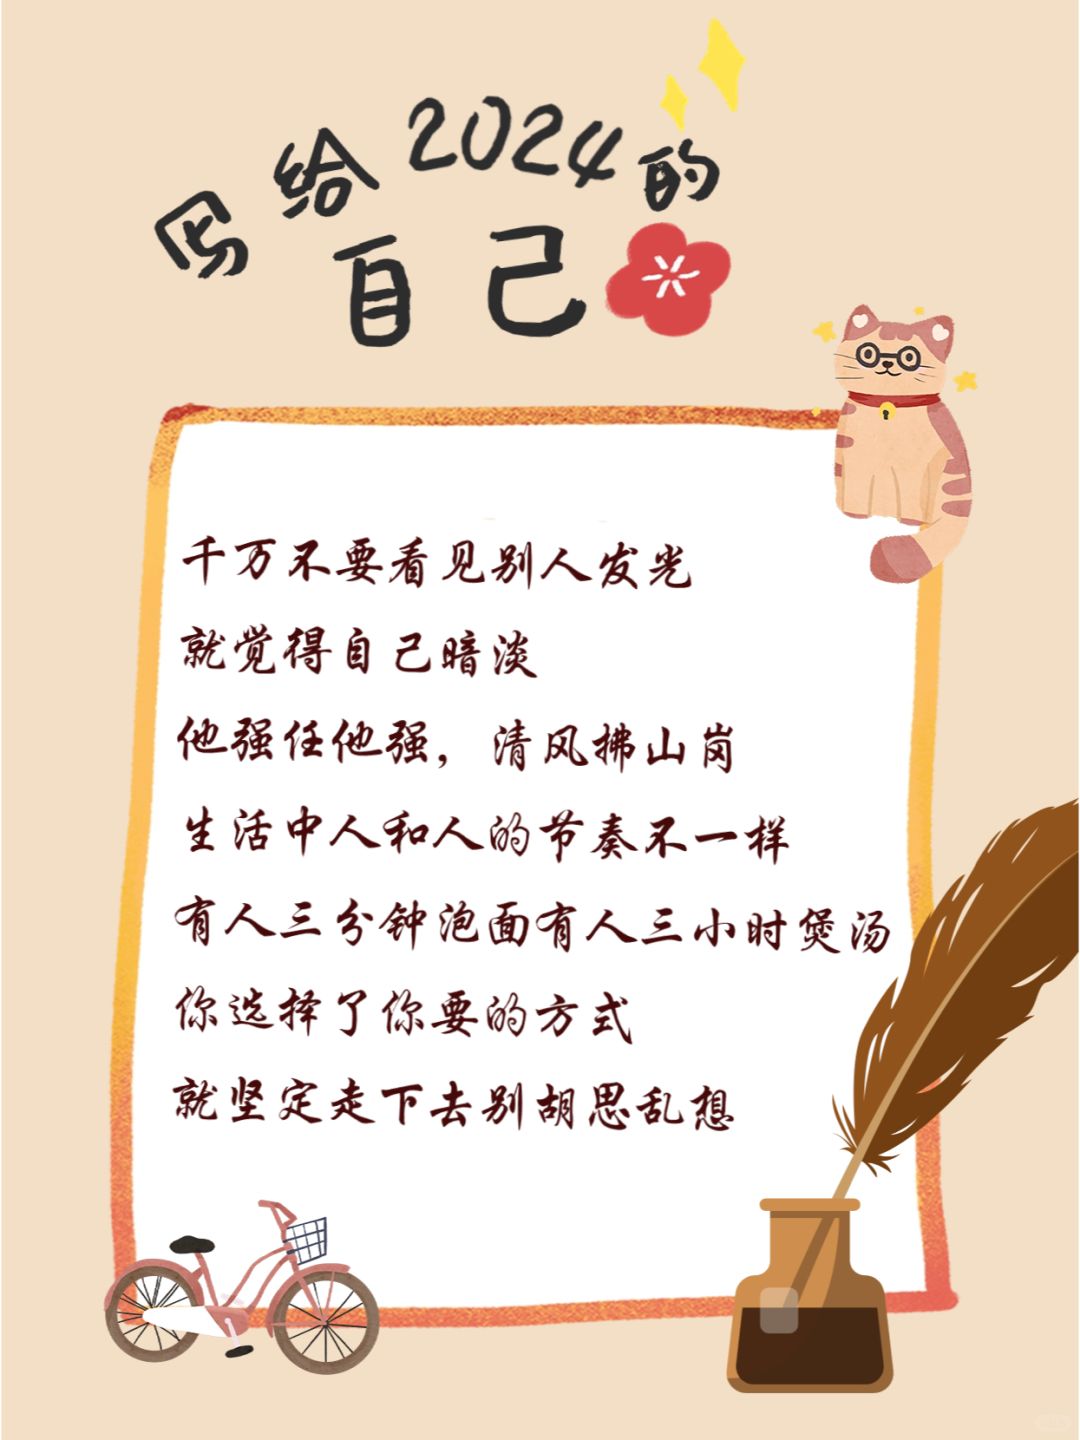 写给2024的
自己
千万不要看见别人发光
就觉得自己暗淡
他强任他强，清风拂山岗
生活中人和人的节奏不一样
有人三分钟泡面有人三小时煲汤
你选择了你要的方式
就坚定走下去别胡思乱想